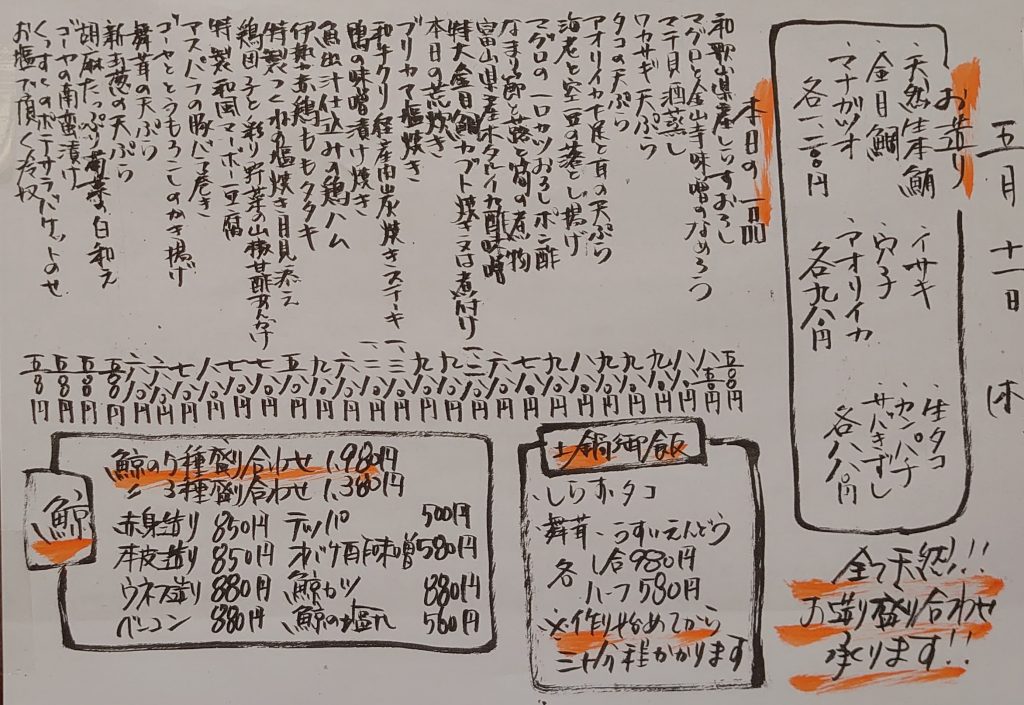 五月 十一日 休
お造り
・天然生本鮪
・金目鯛
・マナガツオ
各一、二〇〇円
・イサキ
・穴子
・アオリイカ
各九八〇円
・生タコ
・カンパチ
・サバきずし
各八八〇円
全て天然!!
お造り盛り合わせ
承ります!!
本日の一品
和歌山県産しらすおろし
マグロと金山寺味噌のなめろう
マテ貝酒蒸し
ワカサギ天ぷら
タコの天ぷら
アオリイカ下足と耳の天ぷら
海老と空豆の落とし揚げ
マグロの一口カツおろしポン酢
なまり節と蕗と筍の煮物
富山県産ホタルイカ酢味噌
特大金目鯛カブト焼き又は煮付け
本日の荒炊き
ブリカマ塩焼き
和牛クリ 経産肉炭焼きステーキ
鴨の味噌漬け焼き
魚出汁仕込みの鶏ハム
伊勢赤鶏ももタタキ
特製つくねの塩焼き月見添え
鶏団子と彩り野菜の山椒甘酢あんかけ
特製和風マーボー豆腐
アスパラの豚バラ巻き
ゴーヤととうもろこしのかき揚げ
舞茸の天ぷら
新玉葱の天ぷら
胡麻たっぷり菊菜の白和え
ゴーヤの南蛮漬け
くんすけのポテサラバケットのせ
お塩で頂く冷奴
土鍋御飯
・しらす・タコ
・舞茸・うすいえんどう
各 1合980円
ハーフ580円
※作り始めてから
三十分程かかります
鯨
鯨の5種盛り合わせ 1,980円
〃 3種盛り合わせ 1,380円
赤身造り 850円 テッパ 500円
本皮造り 850円 オバケ酢味噌 580円
ウネス造り 880円 鯨カツ 880円
ベーコン 880円 鯨の塩タレ 560円